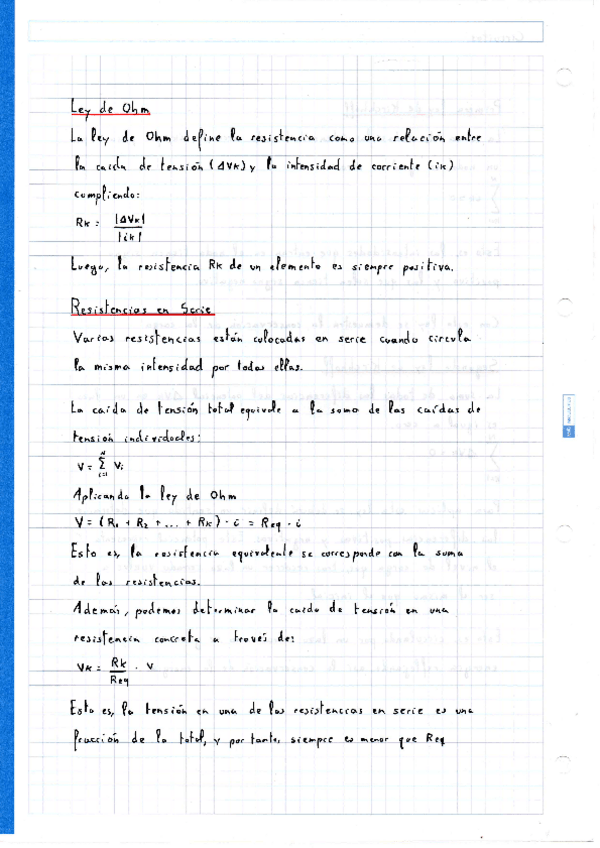 Ley de Ohm
La ley de Ohm define la resistencia como una relación entre
la caída de tensión (ΔVk) y la intensidad de corriente (ik)
cumpliendo:
Rk = |ΔVk| / |ik|
Luego, la resistencia Rk de un elemento es siempre positiva.
Resistencias en Serie
Varias resistencias están colocadas en serie cuando circula
la misma intensidad por todas ellas.
La caída de tensión total equivale a la suma de las caídas de
tensión individuales:
V = Σ_{i=1}^{N} Vi
Aplicando la ley de Ohm
V = (R1 + R2 + ... + Rk) · i = Req · i
Esto es, la resistencia equivalente se corresponde con la suma
de las resistencias.
Además, podemos determinar la caída de tensión en una
resistencia concreta a través de:
Vk = Rk / Req · V
Esto es, la tensión en una de las resistencias en serie es una
fracción de la total, y por tanto, siempre es menor que Req